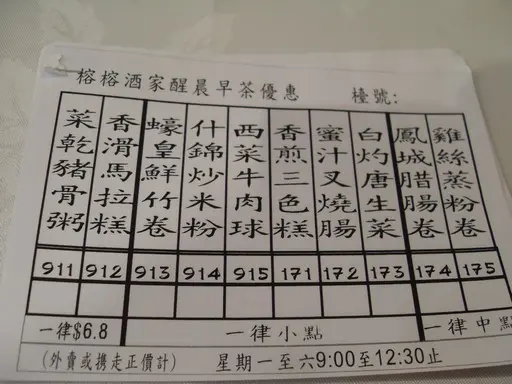 榕榕酒家醒晨早茶優惠 檯號:
菜乾豬骨粥
香滑馬拉糕
蠔皇鮮竹卷
什錦炒米粉
西菜牛肉球
香煎三色糕
蜜汁叉燒腸
白灼唐生菜
鳳城腊腸卷
雞絲蒸粉卷
911 912 913 914 915 171 172 173 174 175
一律$6.8 一律小點 一律中點
(外賣或携走正價計) 星期一至六9:00至12:30止